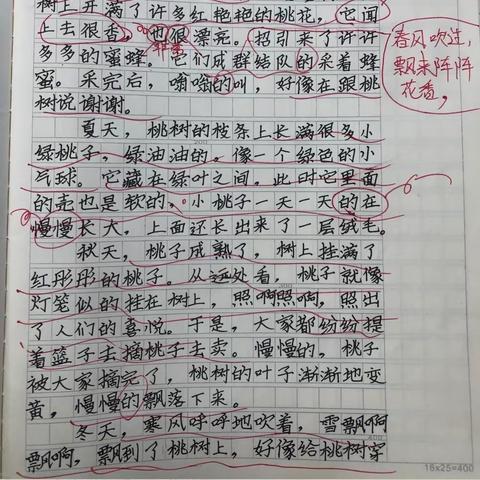 树上开满了许多红艳艳的桃花，它闻
上去很香，也很漂亮。招引来了许许
非常
多多的蜜蜂。它们成群结队的采着蜂
蜜。采完后，嗡嗡的叫，好像在跟桃
树说谢谢。
春风吹过，
飘来阵阵
花香，
夏天，桃树的枝条上长满很多小
绿桃子，绿油油的。像一个绿色的小
气球。它藏在绿叶之间，此时它里面
的壳也是软的，小桃子一天一天的在
慢慢长大，上面还长出来了一层绒毛。
秋天，桃子成熟了，树上挂满了
红彤彤的桃子。从远处看，桃子就像
灯笼似的挂在树上，照啊照啊，照出
了人们的喜悦。于是，大家都纷纷提
着篮子去摘桃子去卖。慢慢的，桃子
被大家摘完了，桃树的叶子渐渐地变
黄，慢慢的飘落下来。
冬天，寒风呼呼地吹着，雪飘啊
飘啊，飘到了桃树上，好像给桃树穿
200
400
16x25=400